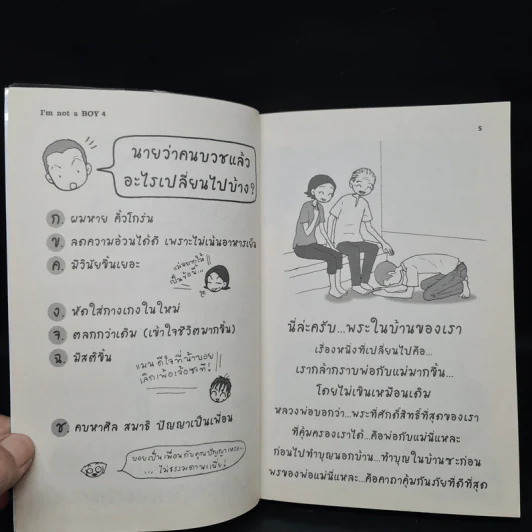 I'm not a BOY 4
นายว่าคนบวชแล้ว
อะไรเปลี่ยนไปบ้าง?
ก. ผมหาย คิ้วโกร๋น
ข. ลดความอ้วนได้ดี เพราะไม่เน้นอาหารเย็น
ค. มีวินัยขึ้นเยอะ
ง. หัดใส่กางเกงในใหม่
จ. ตลกกว่าเดิม (เข้าใจชีวิตมากขึ้น)
ฉ. มีสติขึ้น
แมนดีใจที่น้าบอย
เลิกเพ้อเจ้อซะที!
ช. คบหาศีล สมาธิ ปัญญาเป็นเพื่อน
... ไม่ธรรมดานะเนี่ย!
5
นี่ล่ะครับ...พระในบ้านของเรา
เรื่องหนึ่งที่เปลี่ยนไปคือ...
เรากล้ากราบพ่อกับแม่มากขึ้น...
โดยไม่เขินเหมือนเดิม
หลวงพ่อบอกว่า...พระที่ศักดิ์สิทธิ์ที่สุดของเรา
ที่คุ้มครองเราได้ ...คือพ่อกับแม่นี่แหละ
ก่อนไปทำบุญนอกบ้าน...ทำบุญในบ้านซะก่อน
พรของพ่อแม่นี่แหละ...คือคาถาคุ้มกันภัยที่ดีที่สุด